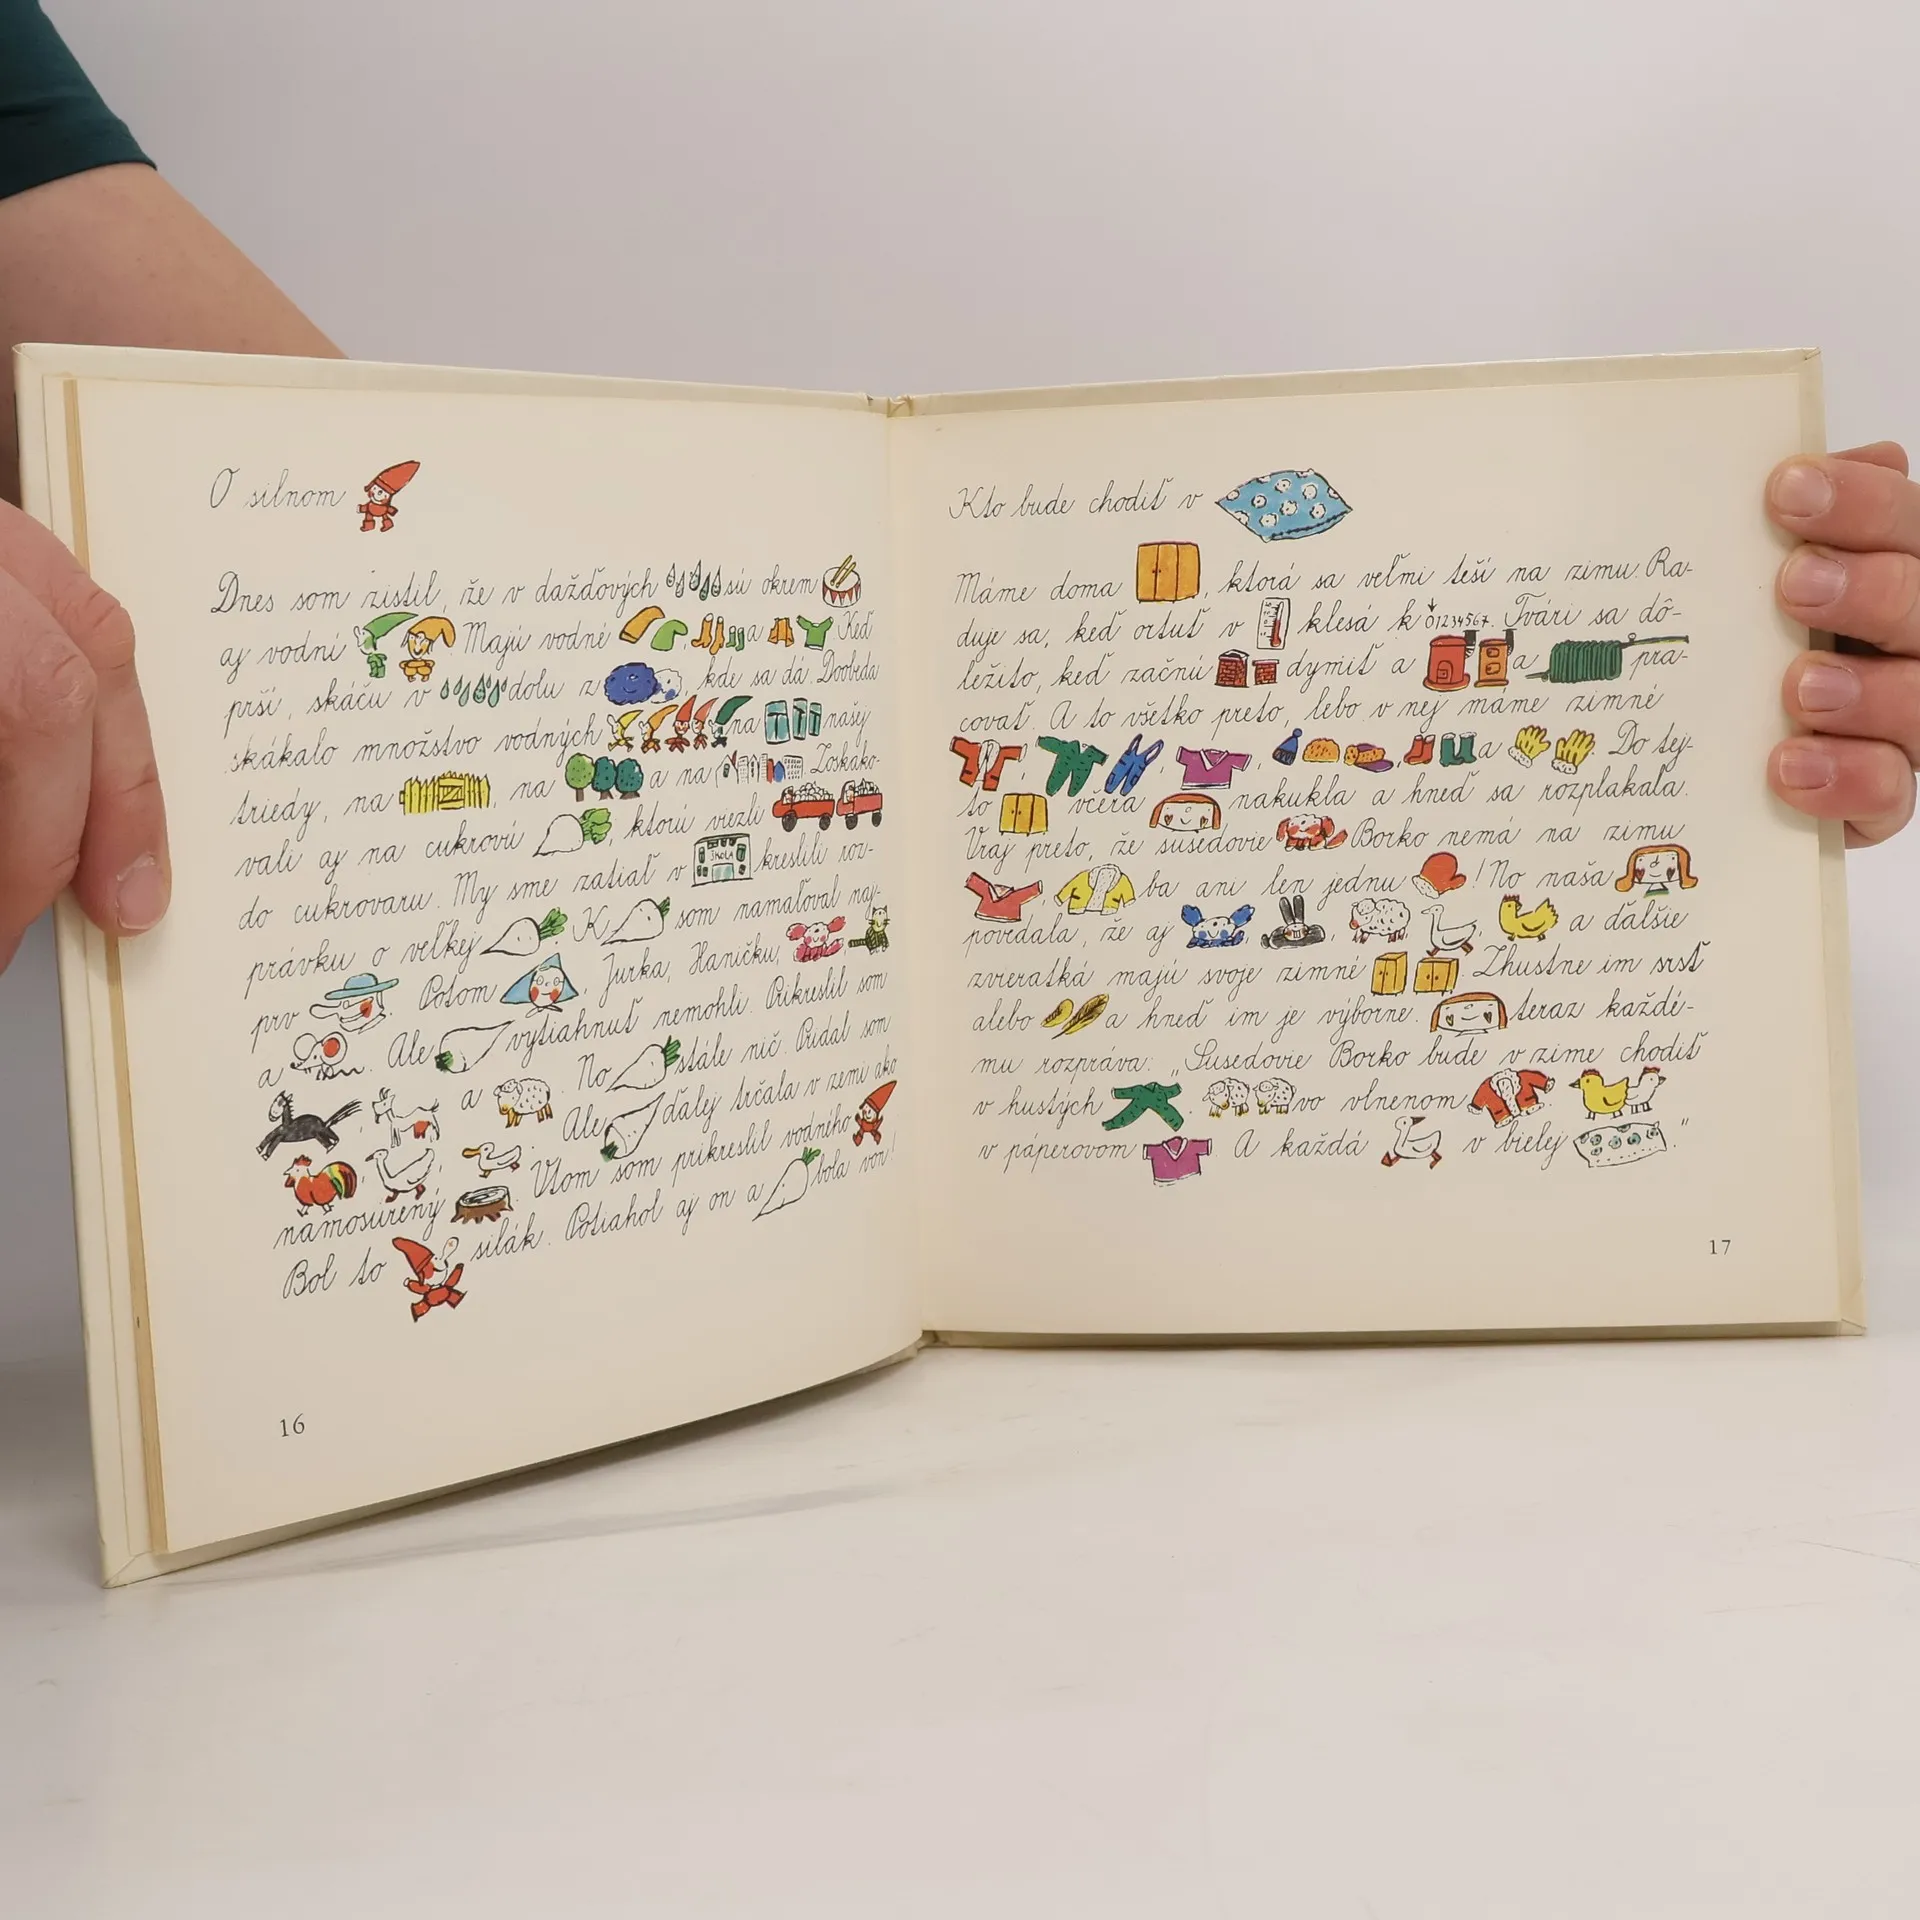 O silnom
Dnes som zistil, že v dažďových sú okrem
aj vodní . Majú vodné , a . Keď
prší, skáču v dolu z , kde sa dá. Doobeda
skákalo množstvo vodných na našej
triedy, na , na a na . Zoskako-
vali aj na cukrovú , ktorú viezli
do cukrovaru. My sme zatiaľ v ŠKOLA kreslili roz-
právku o veľkej . K som namaľoval naj-
prv . Potom , Jurka, Haničku, ,
a . Ale vytiahnuť nemohli. Prikreslil som
, a . No stále nič. Pridal som
, , . Ale ďalej trčala v zemi ako
namosúrený . Vtom som prikreslil vodného .
Bol to silák. Potiahol aj on a bola von!
16
Kto bude chodiť v
Máme doma , ktorá sa veľmi teší na zimu. Ra-
duje sa, keď ortuť v klesá k 01234567. Tvári sa dô-
ležito, keď začnú dymiť a a pra-
covať. A to všetko preto, lebo v nej máme zimné
, , , , a . Do tej-
to včera nakukla a hneď sa rozplakala.
Vraj preto, že susedovie Borko nemá na zimu
, ba ani len jednu ! No naša
povedala, že aj , , , , a ďalšie
zvieratká majú svoje zimné . Zhustne im srsť
alebo a hneď im je výborne. teraz každé-
mu rozpráva: „Susedovie Borko bude v zime chodiť
v hustých . vo vlnenom .
v páperovom . A každá v bielej .“
17